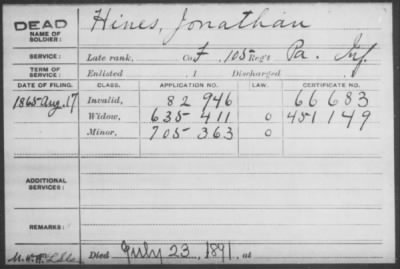 DEAD
NAME OF SOLDIER:
Hines, Jonathan
SERVICE:
Late rank, Co. F, 105 Reg't Pa. Inf.
TERM OF SERVICE:
Enlisted , 1 Discharged , 1
DATE OF FILING. CLASS. APPLICATION NO. LAW. CERTIFICATE NO.
1865 Aug. 17 Invalid, 82 946 66 683
Widow, 635 411 0 451 149
Minor, 705 363 0
ADDITIONAL SERVICES:
REMARKS:
Died July 23, 1891, at